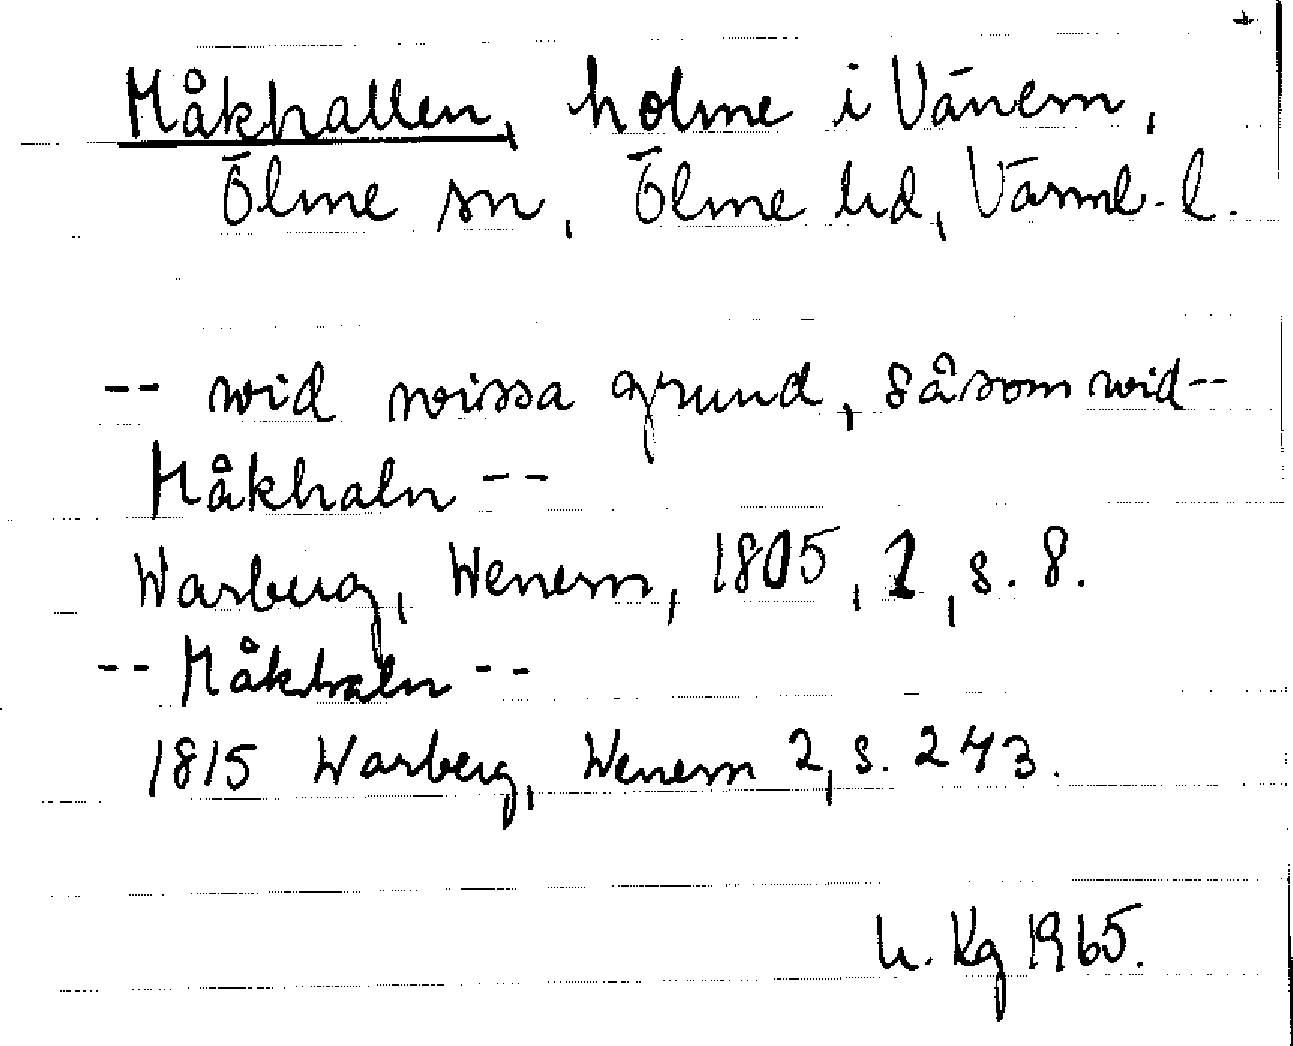 Måkhallen, holme i Vänern,
Ölme sn, Ölme hd, Värml. l.
-- wid wissa grund, såsom wid--
Måkhaln --
Warberg, Wenern, 1805, 1, s. 8.
-- Måkhaln --
1815 Warberg, Wenern 2, s. 243.
h. Kg 1965.